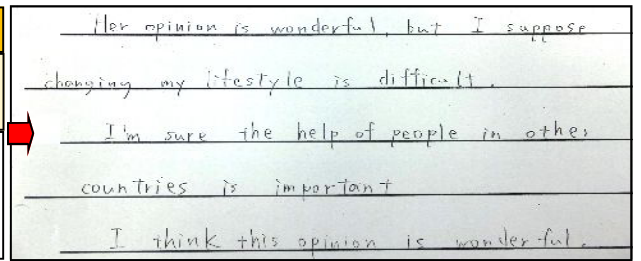 Her opinion is wonderful, but I suppose
changing my lifestyle is difficult.
I'm sure the help of people in other
countries is important
I think this opinion is wonderful.